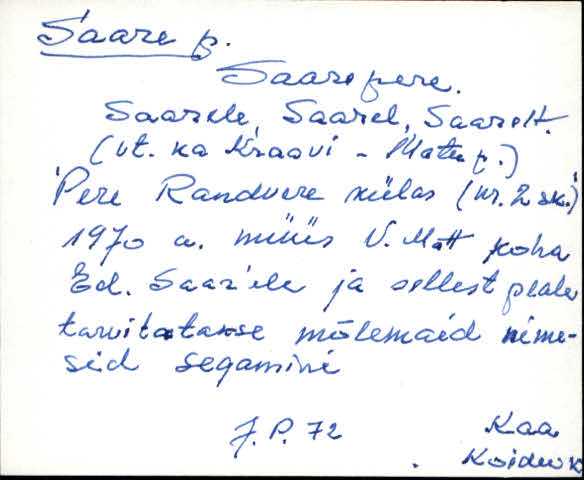 Saare p.
Saarepere.
Saarele, Saarel, Saarelt.
(vt. ka Kraavi - Matu p.)
Pere Randvere külas (nr. 2 sk.)
1970 a. müüs V. Matt koha
Ed. Saar'ele ja sellest peale
tarvitatakse mõlemaid nime-
sid segamini
J. P. 72
Kaa
Koidu k